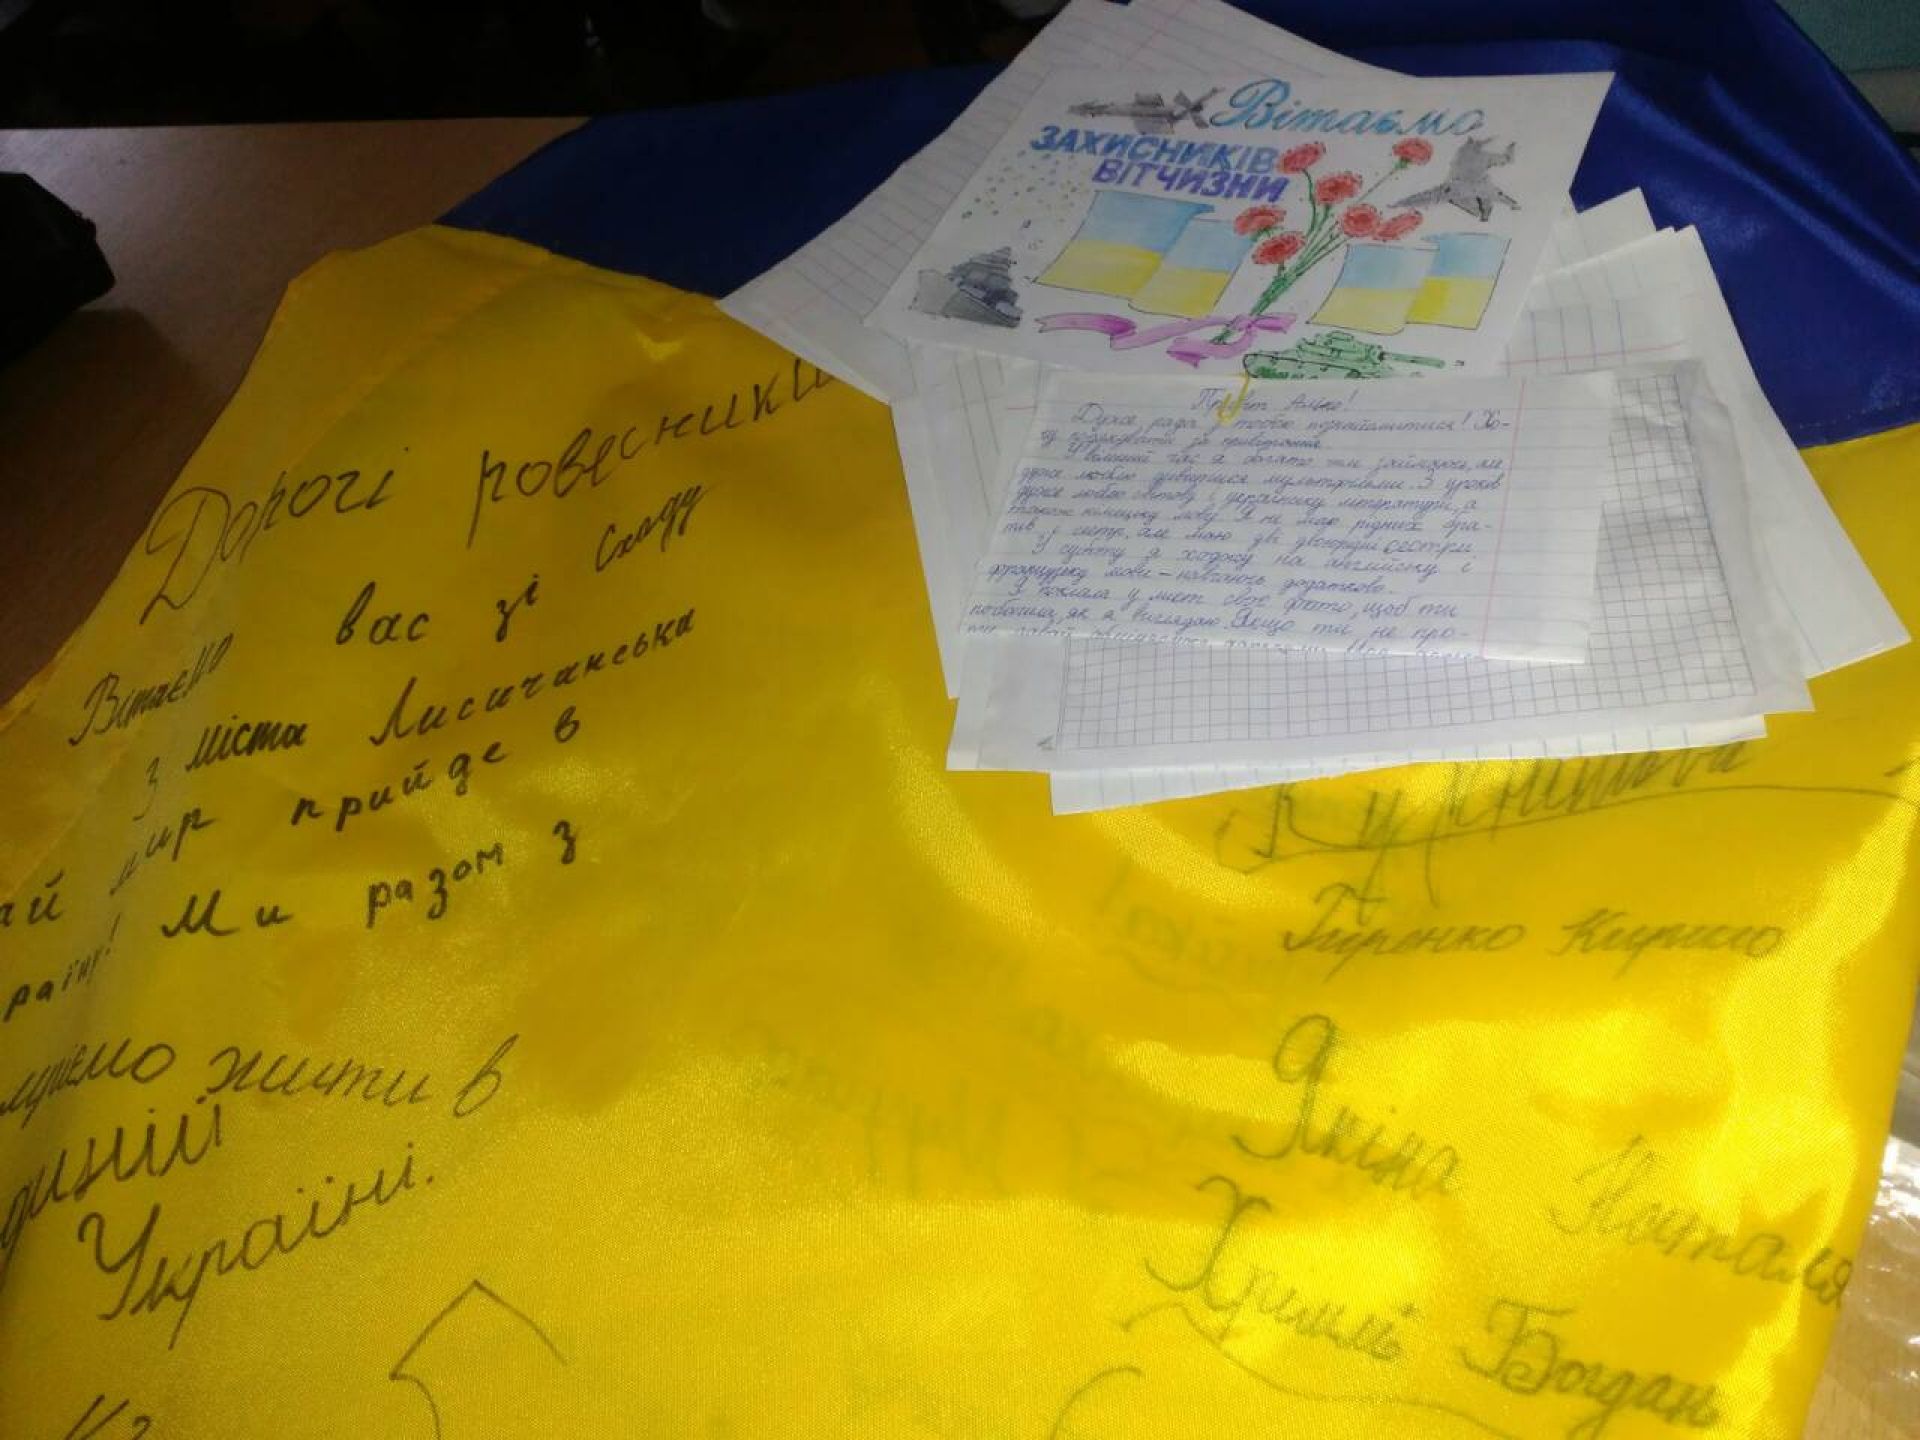 Вітаємо
ЗАХИСНИКІВ
ВІТЧИЗНИ
Привіт Аліно!
Дуже рада з тобою познайомитися! Хо-
чу подякувати за привітання.
У вільний час я багато чим займаюсь, але
дуже люблю дивитися мультфільми. З уроків
дуже люблю світову і українську літературу, а
також німецьку мову. Я не маю рідних бра-
тів і сестр, але маю дві двоюрідні сестри
У суботу я ходжу на англійську і
французьку мови – навчаюсь додатково.
Я поклала у лист своє фото, щоб ти
побачила, як я виглядаю. Якщо ти не про-
ти давай
Дорогі ровесники
Вітаємо вас зі Сходу
з міста Лисичанська
ай мир прийде в
раїну! Ми разом з
мріємо жити в
диній
Україні.
Кирило
Якіна Наталія
Богдан